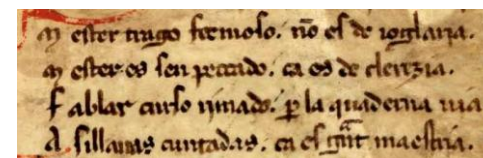 M ester trago fermoso. nõ es de ioglaria.
M ester es sen peccado. ca es de clerizia.
F ablar curso rimado. ꝑ la quaderna uia
A sillauas cuntadas. ca es gᵃnt maestria.